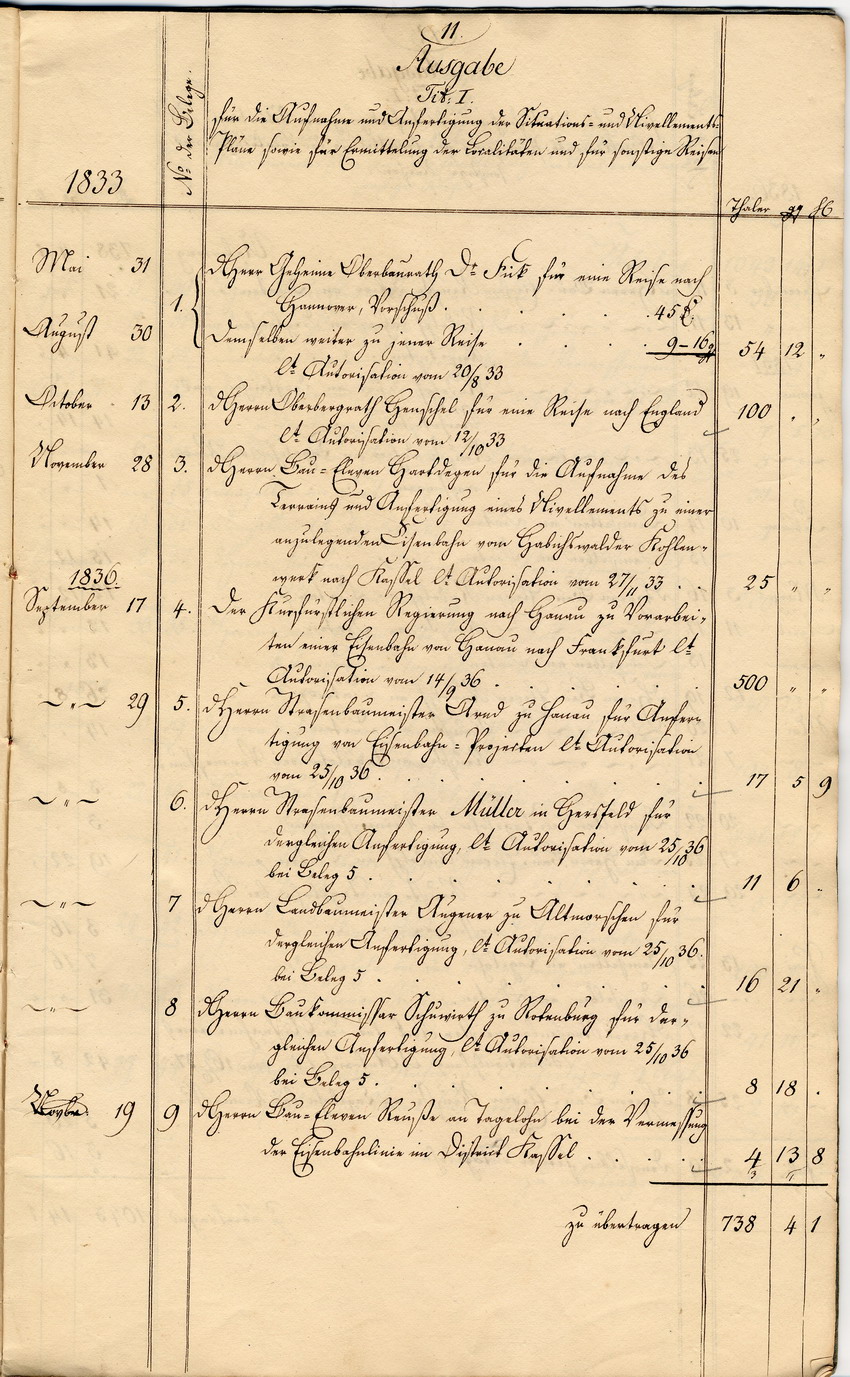 11.
Ausgabe
Tit: I.
für die Aufnahme und Anfertigung der Situations- und Nivellements-
Pläne sowie für Ermittelung der Localitäten und für sonstige Reisen
No der Belege.
1833
Thaler ggr H
Mai 31 1. dHerr Geheime Oberbaurath Dr Fick für eine Reise nach
Hannover, Vorschuß . . . . 45
August 30 demselben weiter zu jener Reise . . . 9 – 16 54 12 „
lt Autorisation vom 20/8 33
October 13 2. dHerrn Oberbergrath Henschel für eine Reise nach England 100 . „
lt Autorisation vom 12/10 33
November 28 3. dHerrn Bau-Eleven Hartdegen für die Aufnahme des
Terrains und Anfertigung eines Nivellements zu einer
anzulegenden Eisenbahn vom Habichswalder Kohlen-
werk nach Kassel lt Autorisation vom 27/11 33 . . 25 „ „
1836.
September 17 4. Der Kurfürstlichen Regierung nach Hanau zu Vorarbei-
ten einer Eisenbahn von Hanau nach Frankfurt lt
Autorisation vom 14/9 36 . . . . 500 „ „
– „ – 29 5. dHerrn Strasenbaumeister Arnd zu Hanau für Anfer-
tigung von Eisenbahn-Projecten lt Autorisation
vom 25/10 36 . . . . 17 5 9
– „ – 6. dHerrn Strasenbaumeister Müller in Hersfeld für
dergleichen Anfertigung, lt Autorisation vom 25/10 36
bei Beleg 5 . . . . 11 6 .
– „ – 7 dHerrn Landbaumeister Augener zu Altmorschen für
dergleichen Anfertigung, lt Autorisation vom 25/10 36.
bei Beleg 5 . . . . 16 21 „
– „ – 8 dHerrn Baukommissar Schuwirth zu Rotenburg für der-
gleichen Anfertigung, lt Autorisation vom 25/10 36
bei Beleg 5 . . . . 8 18 .
Novbr. 19 9 dHerrn Bau-Eleven Reuße an Tagelohn bei der Vermessung
der Eisenbahnlinie im District Kassel . . . . 4 13 8
3 1
zu übertragen 738 4 1